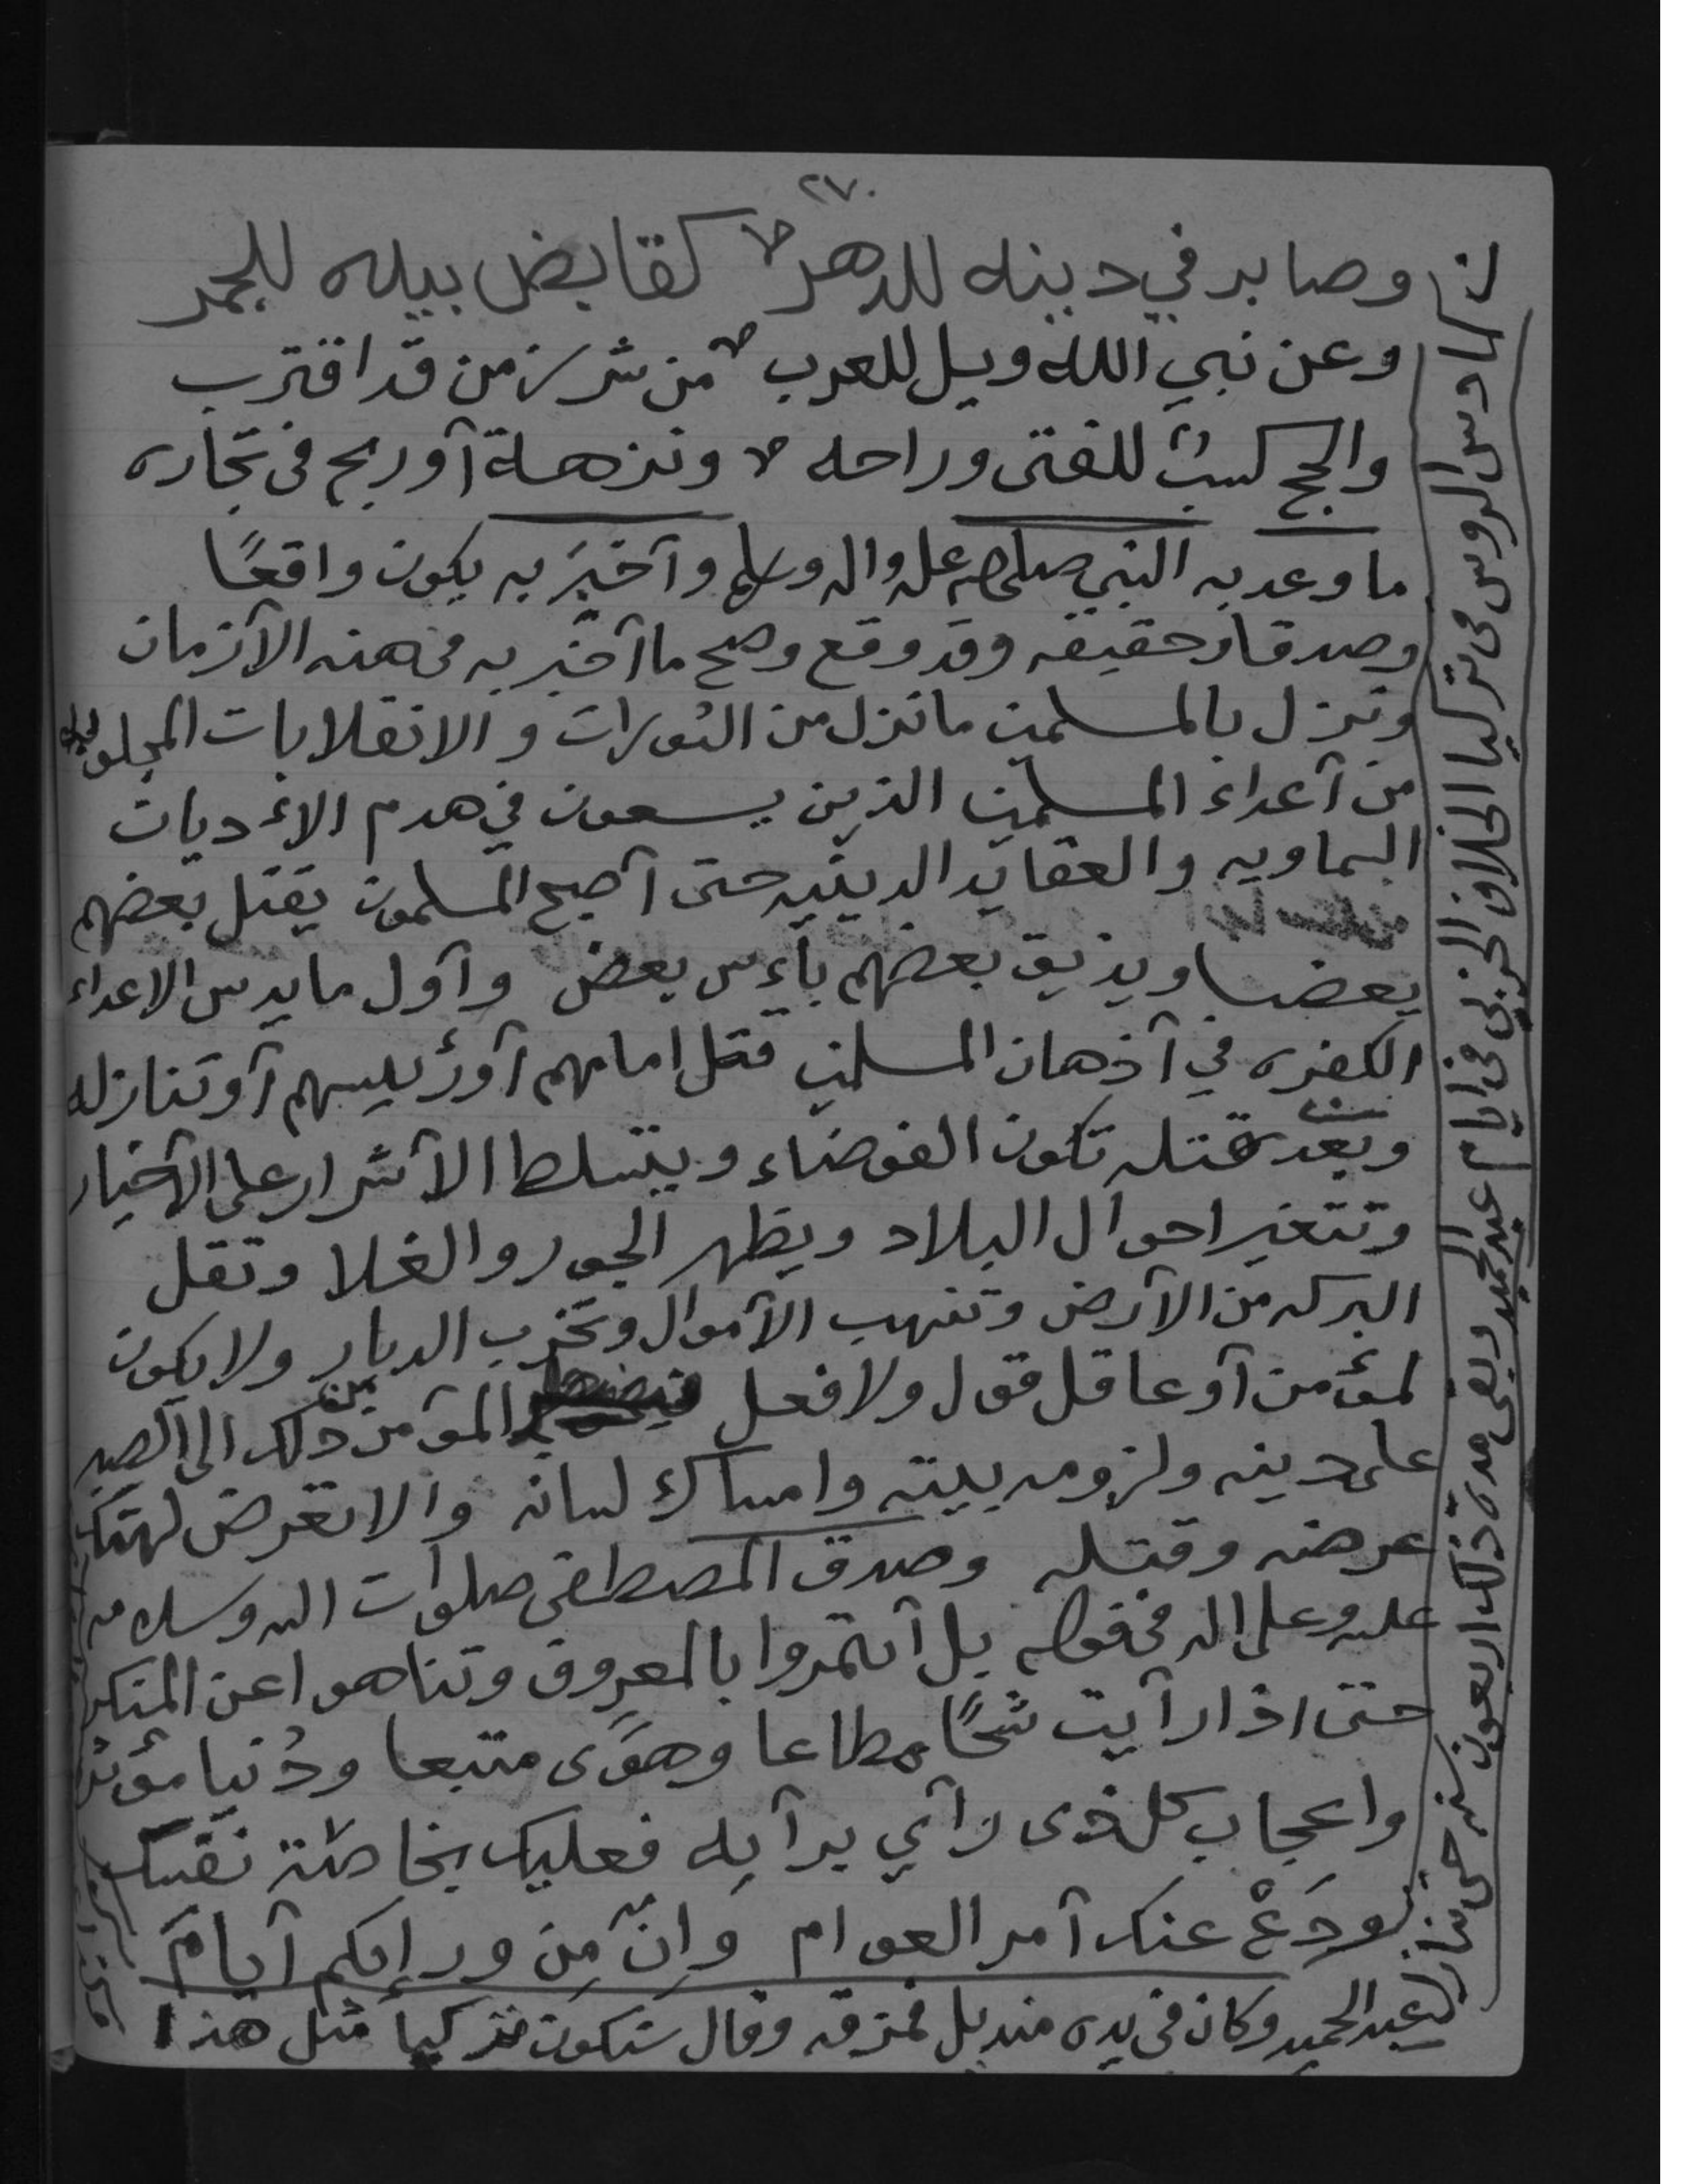 ٢٧٠
وصابر في دينه للدهر كقابض بيده للجمر
وعن نبي الله ويل للعرب من شر زمن قد اقترب
والحج كسب للفتى وراحه ونزهة أو ربح في تجاره
ما وعد به النبي صلى الله عليه واله وسلم وأخبر به يكون واقعًا
وصدقا وحقيقه وقد وقع وصح ما أخبر به في هذه الأزمان
ونزل بالمسلمين ما نزل من الثورات والانقلابات المجلوبه
من أعداء المسلمين الذين يسعون في هدم الاديان
السماويه والعقايد الدينيه حتى أصبح المسلمون يقتل بعضهم
بعضا ويذيق بعضهم بأس بعض وأول ما يدس الاعداء
الكفره في أذهان المسلمين قتل امامهم أو رئيسهم أو تنازله
وبعد قتله تكون الفوضاء ويتسلط الأشرار على الأخيار
وتتغير احوال البلاد ويظهر الجور والغلا وتقل
البركه من الأرض وتنهب الأموال وتخرب الديار ولا يكون
لمؤمن أو عاقل قول ولا فعل المؤمن من ذلك الى الصبر
على دينه ولزومه بيته وامساك لسانه والا تعرض لهتك
عرضه وقتله وصدق المصطفى صلوات الله وسلامه
عليه وعلى اله في قوله بل أتمروا بالمعروف وتناهوا عن المنكر
حتى اذا رأيت شحًا مطاعا وهوًى متبعا ودُنيا مؤثره
واعجاب كل ذى رأي برأيه فعليك بخاصة نفسك
ودَعْ عنك أمر العوام وَانّ مِن ورائكم أيامَ
دس الروس في تركيا الخلاف الحزبي في ايام عبد الحميد وبقى مدة ذلك اربعون سنه حتى تنازل
عبد الحميد وكان في يده منديل فمزقه وقال ستكون تركيا مثل هذا